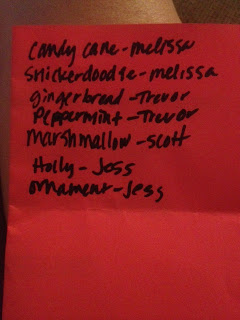 candy cane - melissa
snickerdoodle - melissa
gingerbread - Trevor
Peppermint - Trevor
marshmallow - scott
Holly - Jess
ornament - Jess